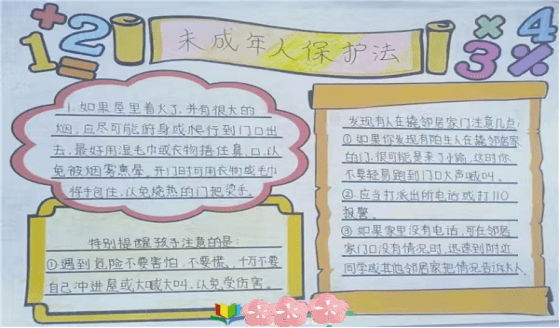 + 2
1 =
未成年人保护法
× 4
3 %
1. 如果屋里着火了,并有很大的
烟,应尽可能俯身或爬行到门口出
去,最好用湿毛巾或衣物捂住鼻、口,以
免被烟雾熏晕。开门时可用衣物或毛巾
将手包住,以免烧热的门把烫手。
特别提醒孩子注意的是:
①遇到危险不要害怕,不要慌,千万不要
自己冲进屋或大喊大叫,以免受伤害。
发现有人在撬邻居家门注意几点:
①如果你发现有陌生人在撬邻居家
的门,很可能是来了小偷,这时你
不要轻易跑到门口大声喊叫。
②应当打派出所电话或打110
报警。
③如果家里没有电话,可在邻居
家门口没有情况时,迅速到附近
同学或其他邻居家把情况告诉大人。